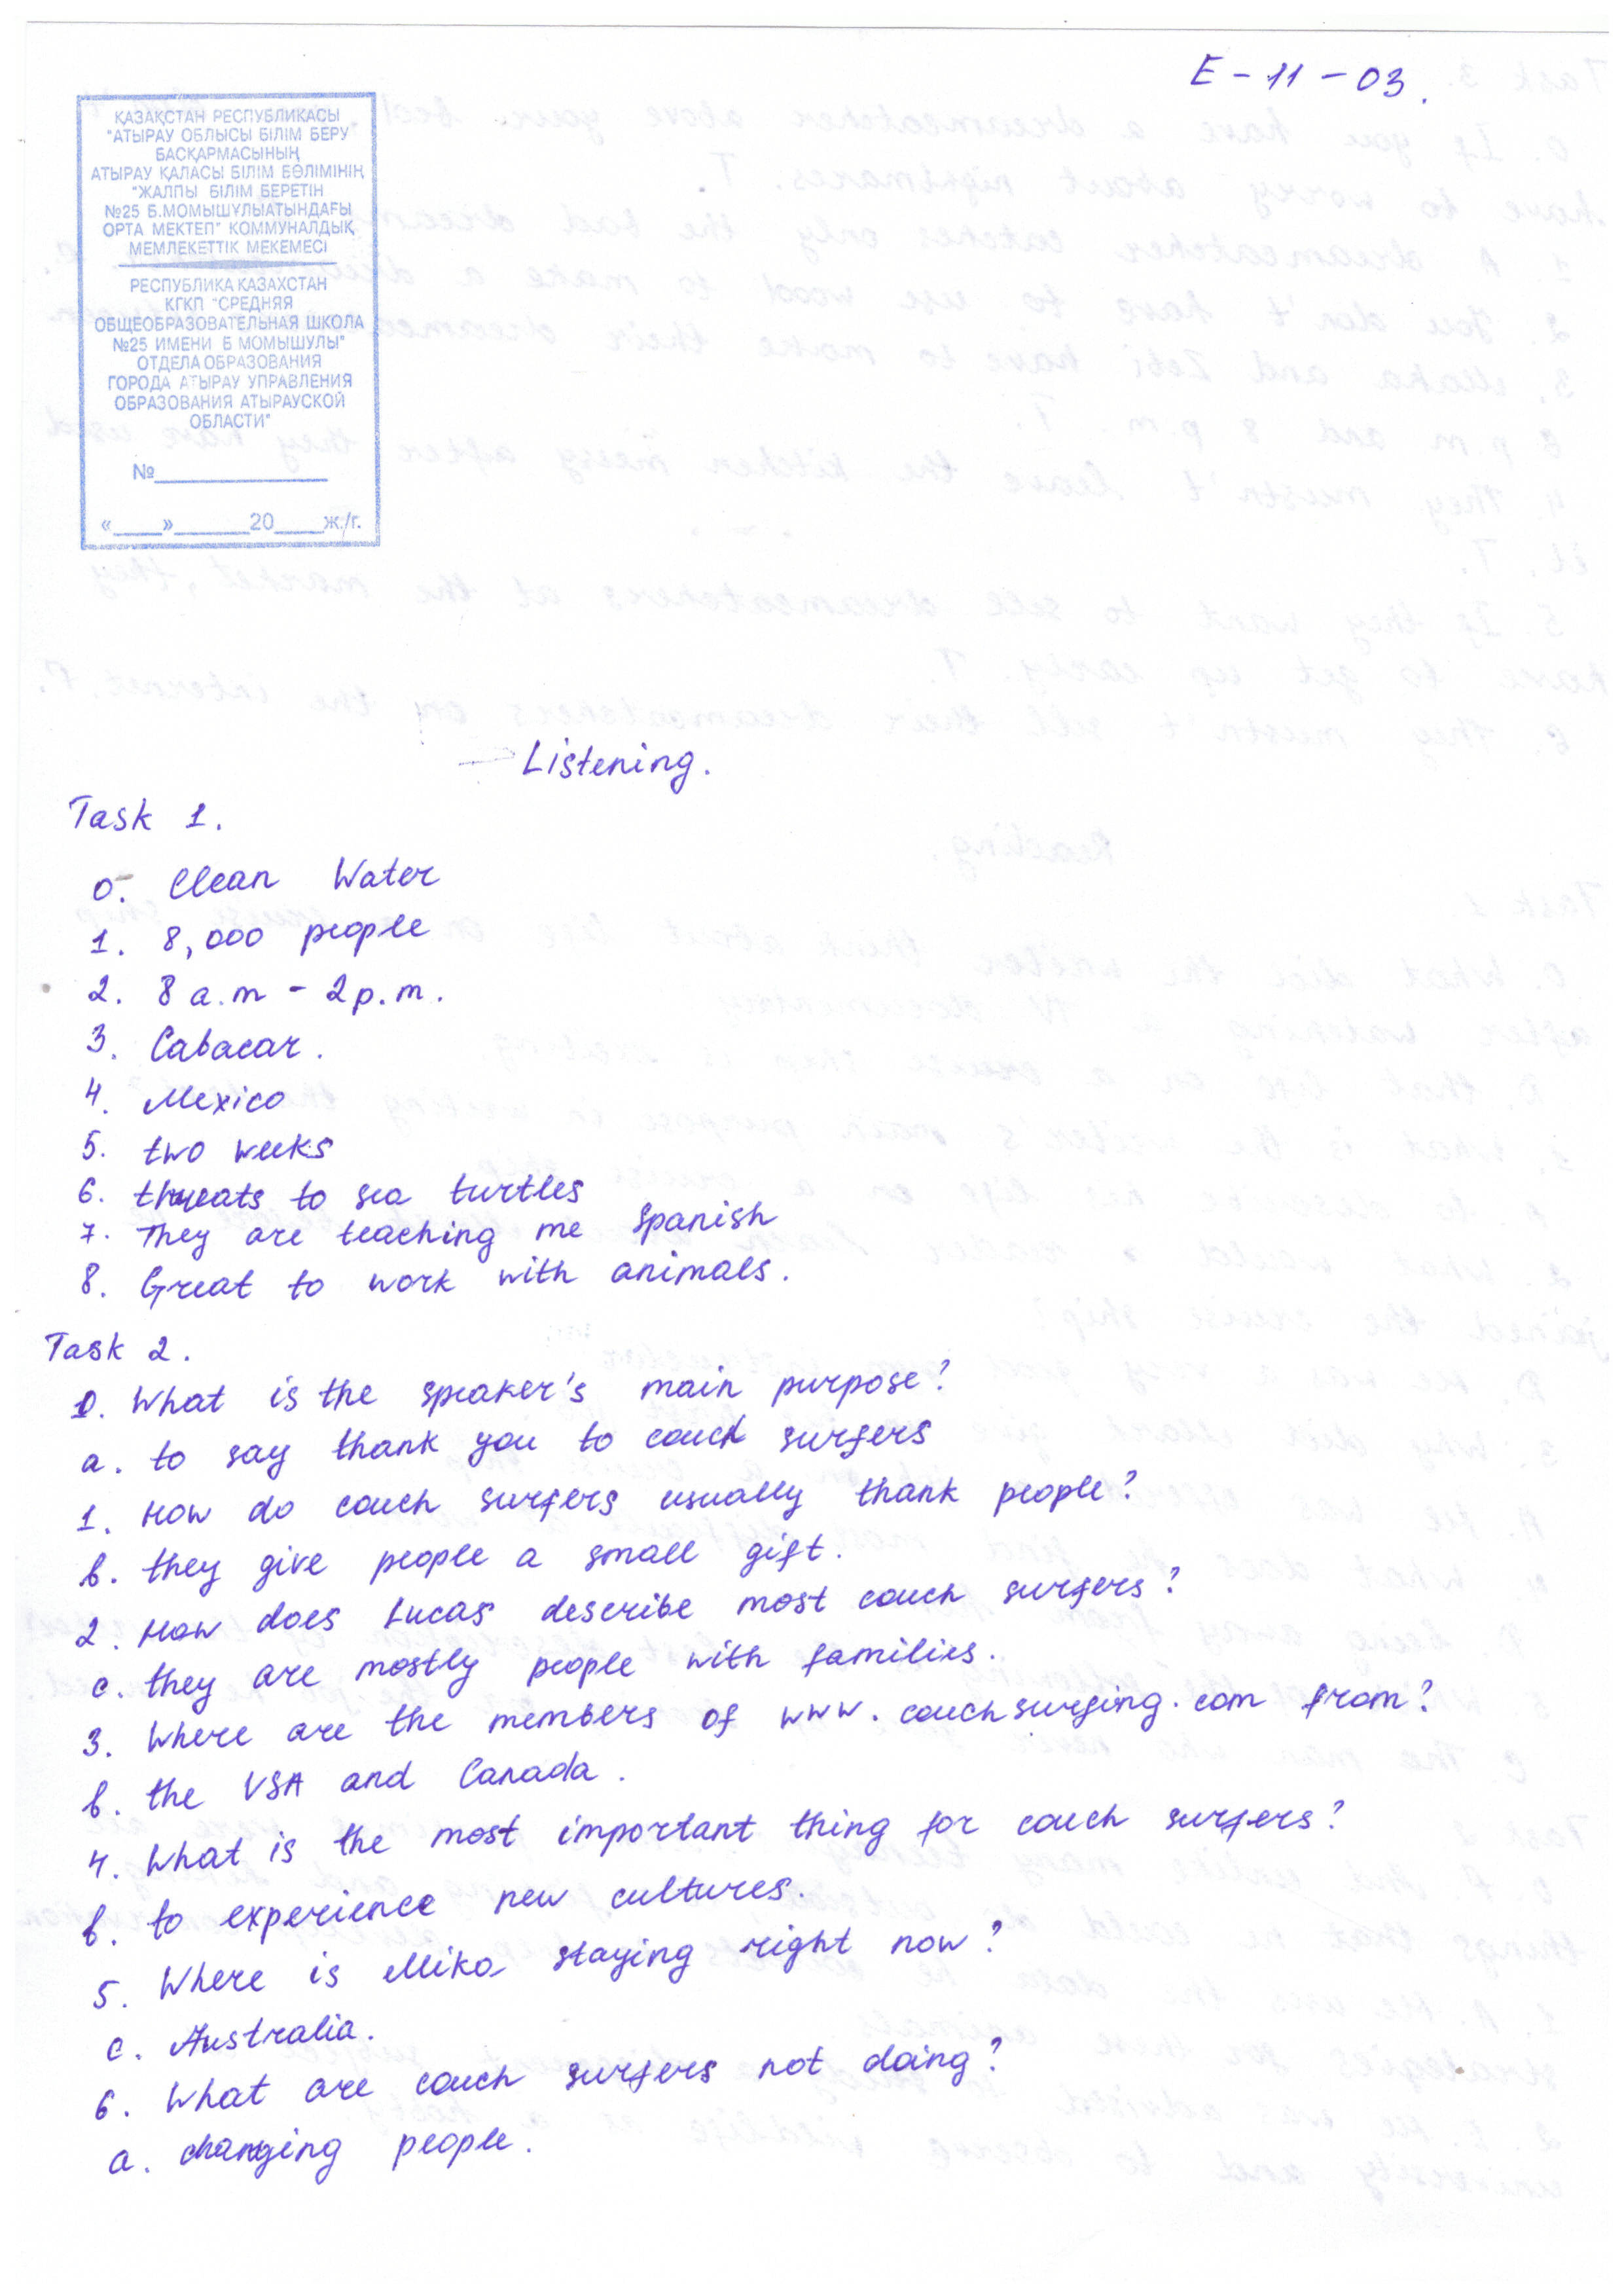 E-11-03.
ҚАЗАҚСТАН РЕСПУБЛИКАСЫ
"АТЫРАУ ОБЛЫСЫ БІЛІМ БЕРУ
БАСҚАРМАСЫНЫҢ
АТЫРАУ ҚАЛАСЫ БІЛІМ БӨЛІМІНІҢ
"ЖАЛПЫ БІЛІМ БЕРЕТІН
№25 Б.МОМЫШҰЛЫАТЫНДАҒЫ
ОРТА МЕКТЕП" КОММУНАЛДЫҚ
МЕМЛЕКЕТТІК МЕКЕМЕСІ
РЕСПУБЛИКА КАЗАХСТАН
КГКП "СРЕДНЯЯ
ОБЩЕОБРАЗОВАТЕЛЬНАЯ ШКОЛА
№25 ИМЕНИ Б МОМЫШУЛЫ"
ОТДЕЛА ОБРАЗОВАНИЯ
ГОРОДА АТЫРАУ УПРАВЛЕНИЯ
ОБРАЗОВАНИЯ АТЫРАУСКОЙ
ОБЛАСТИ"
№
«____»______20____ж./г.
Listening.
Task 1.
0. Clean Water
1. 8,000 people
2. 8 a.m - 2p.m.
3. Cabacar.
4. Mexico
5. two weeks
6. threats to sea turtles
7. They are teaching me Spanish
8. Great to work with animals.
Task 2.
0. What is the speaker's main purpose?
a. to say thank you to couch surfers
1. How do couch surfers usually thank people?
b. they give people a small gift.
2. How does Lucas describe most couch surfers?
c. they are mostly people with families.
3. Where are the members of www.couchsurfing.com from?
b. the USA and Canada.
4. What is the most important thing for couch surfers?
b. to experience new cultures.
5. Where is Miko staying right now?
c. Australia.
6. What are couch surfers not doing?
a. changing people.